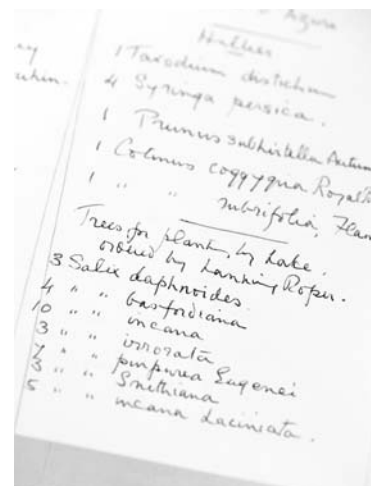 Azura
Hillier
1 Taxodium distichum
4 Syringa persica.
1 Prunus subhirtella Autum
1 Cotinus coggygria Royal
1 " " rubrifolia, Flam
Trees for planting by Lake.
ordered by Lanning Roper.
3 Salix daphnoides
4 " " basfordiana
10 " " incana
3 " " irrorata
" " purpurea Eugenei
3 " " Smithiana
5 " " incana laciniata.